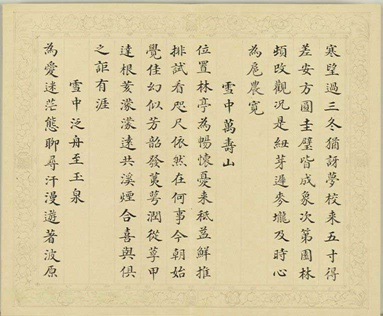 寒望過三冬猶訝夢校来五寸得
差安方圓圭璧皆成象次第園林
頓改觀況是紐芽遍麥壠及時心
為扈農寬
雪中萬壽山
位置林亭為暢懷憂来祇益鮮推
排試看咫尺依然在何事今朝始
覺佳幻似芳韶發 潤從莩甲
達根荄濛濛遠共溪煙合喜與俱
之詎有涯
雪中泛舟至玉泉
為愛迷茫態聊尋汗漫遊著波原